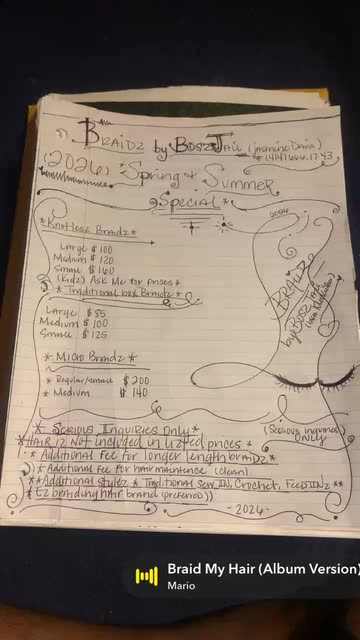 Braidz by BOSZ Jail (Jasmine Davis)
(2026) Spring & Summer
Special
2026
*Knotlesz Braidz*
Large $100
Medium $120
Small $160
(Kidz) Ask Me for prices*
*Traditional box Braidz*
Large $85
Medium $100
Small $125
*Micro Braidz*
* Regular/small $200
* Medium $140
BRAIDZ
by BOSZ
* Serious Inquiries Only *
(Serious Inquires)
ONLY
*HAIR IZ Not included in lizted prices *
* Additional Fee for longer length braidz *
* Additional Fee for hair maintence (clean)
**Additional stylez * Traditional Sew IN, Crochet, FeedINz **
* EZ braiding hair brand (preferred))
- 2026 -
Braid My Hair (Album Version)
Mario